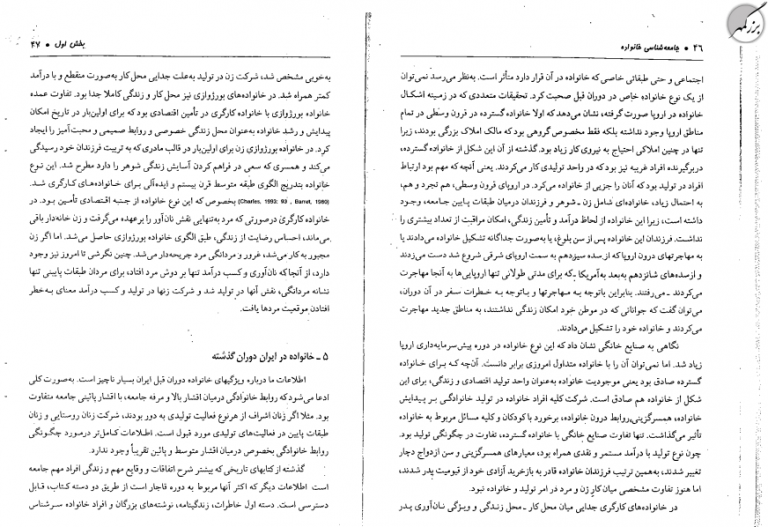 ۴۶ • جامعه‌شناسی خانواده
اجتماعی و حتی طبقاتی خاصی که خانواده در آن قرار دارد متأثر است. به‌نظر می‌رسد نمی‌توان
از یک نوع خانواده خاص در دوران قبل صحبت کرد. تحقیقات متعددی که در زمینه اشکال
خانواده در اروپا صورت گرفته، نشان می‌دهد که اولاً خانواده گسترده در قرون وسطی در تمام
مناطق اروپا وجود نداشته بلکه فقط مخصوص گروهی بود که مالک املاک بزرگی بودند، زیرا
در چنین املاکی احتیاج به نیروی کار زیاد بود. گذشته از آن این شکل از خانواده گسترده،
دربرگیرنده افراد غریبه نیز بود که در واحد تولیدی کار می‌کردند. یعنی آنچه که مهم بود ارتباط
افراد در تولید بود که آنان را جزیی از خانواده می‌کرد. در اروپای قرون وسطی، هم تجرد و هم،
به احتمال زیاد، خانواده‌ای شامل زن ـ شوهر و فرزندان درمیان طبقات پایین جامعه، وجود
داشته است، زیرا این خانواده از لحاظ درآمد و تأمین زندگی، امکان مراقبت از تعداد بیشتری را
نداشت. فرزندان این خانواده پس از سن بلوغ، یا به‌صورت جداگانه تشکیل خانواده می‌دادند یا
به مهاجرتهای درون اروپا که از سده سیزدهم به سمت اروپای شرقی شروع شد دست می‌زدند
و از سده‌های شانزدهم به‌بعد به‌آمریکا ـ که برای مدتی طولانی تنها اروپایی‌ها به آنجا مهاجرت
می‌کردند ـ می‌رفتند. بنابراین باتوجه به مهاجرتها و باتوجه به خطرات سفر در آن دوران،
می‌توان گفت که جوانانی که در موطن خود امکان زندگی نداشتند، به مناطق جدید مهاجرت
می‌کردند و خانواده خود را تشکیل می‌دادند.
نگاهی به صنایع خانگی نشان داد که این نوع خانواده در دوره پیش‌سرمایه‌داری اروپا
زیاد شد. اما نمی‌توان آن را با خانواده متداول امروزی برابر دانست. آن‌چه که برای خانواده
گسترده صادق بود یعنی موجودیت خانواده به‌عنوان واحد تولید اقتصادی و زندگی، برای این
شکل از خانواده هم صادق است. شرکت کلیه افراد خانواده در تولید خانوادگی بر پیدایش
خانواده، همسرگزینی، روابط درون خانواده، برخورد با کودکان و کلیه مسائل مربوط به خانواده
تأثیر می‌گذاشت. تنها تفاوت صنایع خانگی با خانواده گسترده، تفاوت در چگونگی تولید بود.
چون نوع تولید با درآمد مستمر و نقدی همراه بود، معیارهای همسرگزینی و سن ازدواج دچار
تغییر شدند، به‌همین ترتیب فرزندان خانواده قادر به بازخرید آزادی خود از قیومیت پدر شدند،
اما هنوز تفاوت مشخصی میان کار زن و مرد در امر تولید و خانواده نبود.
در خانواده‌های کارگری جدایی میان محل کار ـ محل زندگی و ویژگی نان‌آوری پدر
بخش اول • ۴۷
به‌خوبی مشخص شد، شرکت زن در تولید به‌علت جدایی محل کار به‌صورت منقطع و با درآمد
کمتر همراه شد. در خانواده‌های بورژوازی نیز محل کار و زندگی کاملا جدا بود. تفاوت عمده
خانواده بورژوازی با خانواده کارگری در تأمین اقتصادی بود که برای اولین‌بار در تاریخ امکان
پیدایش و رشد خانواده به‌عنوان محل زندگی خصوصی و روابط صمیمی و محبت‌آمیز را ایجاد
کرد. در خانواده بورژوازی زن برای اولین‌بار در قالب مادری که به تربیت فرزندان خود رسیدگی
می‌کند و همسری که سعی در فراهم کردن آسایش زندگی شوهر را دارد مطرح شد. این نوع
خانواده بتدریج الگوی طبقه متوسط قرن بیستم و ایده‌آلی برای خانواده‌های کارگری شد.
(Charles, 1993: 93 , Barret, 1980) بخصوص که این نوع خانواده از جنبه اقتصادی تأمین بود. در
خانواده کارگری درصورتی که مرد به‌تنهایی نقش نان‌آور را برعهده می‌گرفت و زن خانه‌دار باقی
می‌ماند، احساس رضایت از زندگی، طبق الگوی خانواده بورژوازی حاصل می‌شد. اما اگر زن
مجبور به کار می‌شد، غرور و مردانگی مرد جریحه‌دار می‌شد. چنین نگرشی تا امروز نیز وجود
دارد، از آنجا که نان‌آوری و کسب درآمد تنها بر دوش مرد افتاد، برای مردان طبقات پایینی تنها
نشانه مردانگی، نقش آنها در تولید شد و شرکت زنها در تولید و کسب درآمد معنای به‌خطر
افتادن موقعیت مردها یافت.
۵ ـ خانواده در ایران دوران گذشته
اطلاعات ما درباره ویژگیهای خانواده دوران قبل ایران بسیار ناچیز است. به‌صورت کلی
ادعا می‌شود که روابط خانوادگی درمیان اقشار بالا و مرفه جامعه، با اقشار پائینی جامعه متفاوت
بود. مثلا اگر زنان اشراف از هرنوع فعالیت تولیدی به دور بودند، شرکت زنان روستایی و زنان
طبقات پایین در فعالیت‌های تولیدی مورد قبول است. اطلاعات کامل‌تر درمورد چگونگی
روابط خانوادگی بخصوص درمیان اقشار متوسط و پائین تقریباً وجود ندارد.
گذشته از کتابهای تاریخی که بیشتر شرح اتفاقات و وقایع مهم و زندگی افراد مهم جامعه
است اطلاعات دیگر که اکثر آنها مربوط به دوره قاجار است از طریق دو دسته کتاب، قابل
دسترسی است. دسته اول خاطرات، زندگینامه، نوشته‌های بزرگان و افراد خانواده سرشناس
بزرگمهر